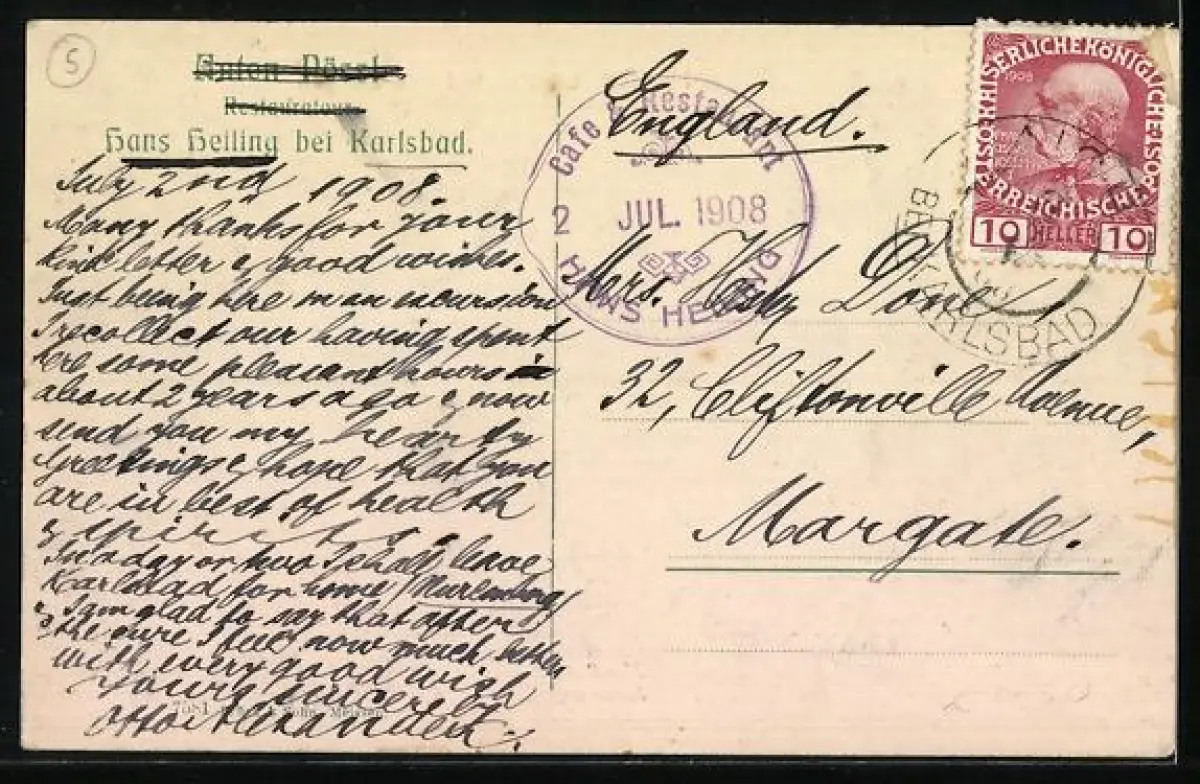 5
Anton Pössl
Restaurateur
Hans Heiling bei Karlsbad.
July 2nd 1908.
Many thanks for your
kind letter & good wishes.
Just being here on an excursion
I recollect our having spent
here some pleasant hours in
about 2 years ago & now
send you my hearty
Greetings & hope that you
are in best of health
& spirits.
In a day or two I shall leave
Karlsbad for home (Nuremberg)
& I am glad to say that after
the cure I feel now much better
with every good wish
yours sincerely
Otto Alexander.
7081
Meissen
Cafe & Restaurant
2 JUL. 1908
HANS HEILING
England.
Mrs. Henry Done
32, Cliftonville Avenue,
Margate.
KAISERLICHE KÖNIGLICHE ÖSTERREICHISCHE POST
1908
10 HELLER 10
KARLSBAD